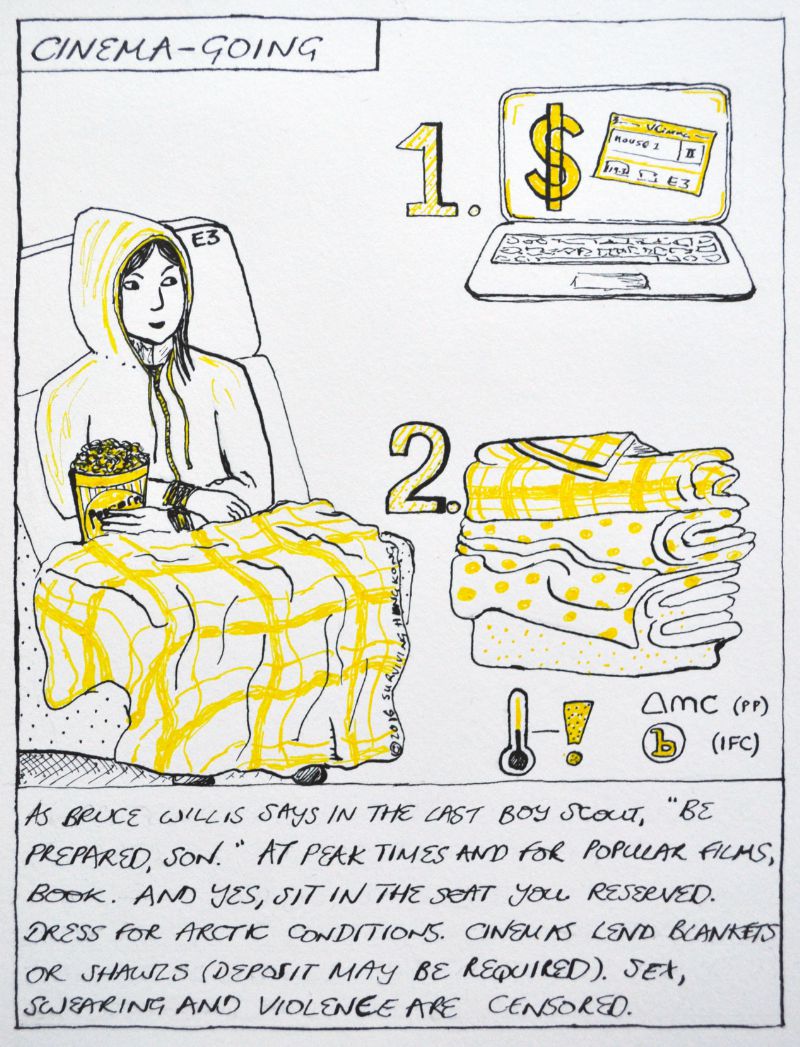 CINEMA-GOING
1.
$
HOUSE 1
II
E3
E3
2.
POPCORN
© 2016 SURVIVING HONG KONG
AMC (PP)
b (IFC)
AS BRUCE WILLIS SAYS IN THE LAST BOY SCOUT, "BE
PREPARED, SON." AT PEAK TIMES AND FOR POPULAR FILMS,
BOOK. AND YES, SIT IN THE SEAT YOU RESERVED.
DRESS FOR ARCTIC CONDITIONS. CINEMAS LEND BLANKETS
OR SHAWLS (DEPOSIT MAY BE REQUIRED). SEX,
SWEARING AND VIOLENCE ARE CENSORED.